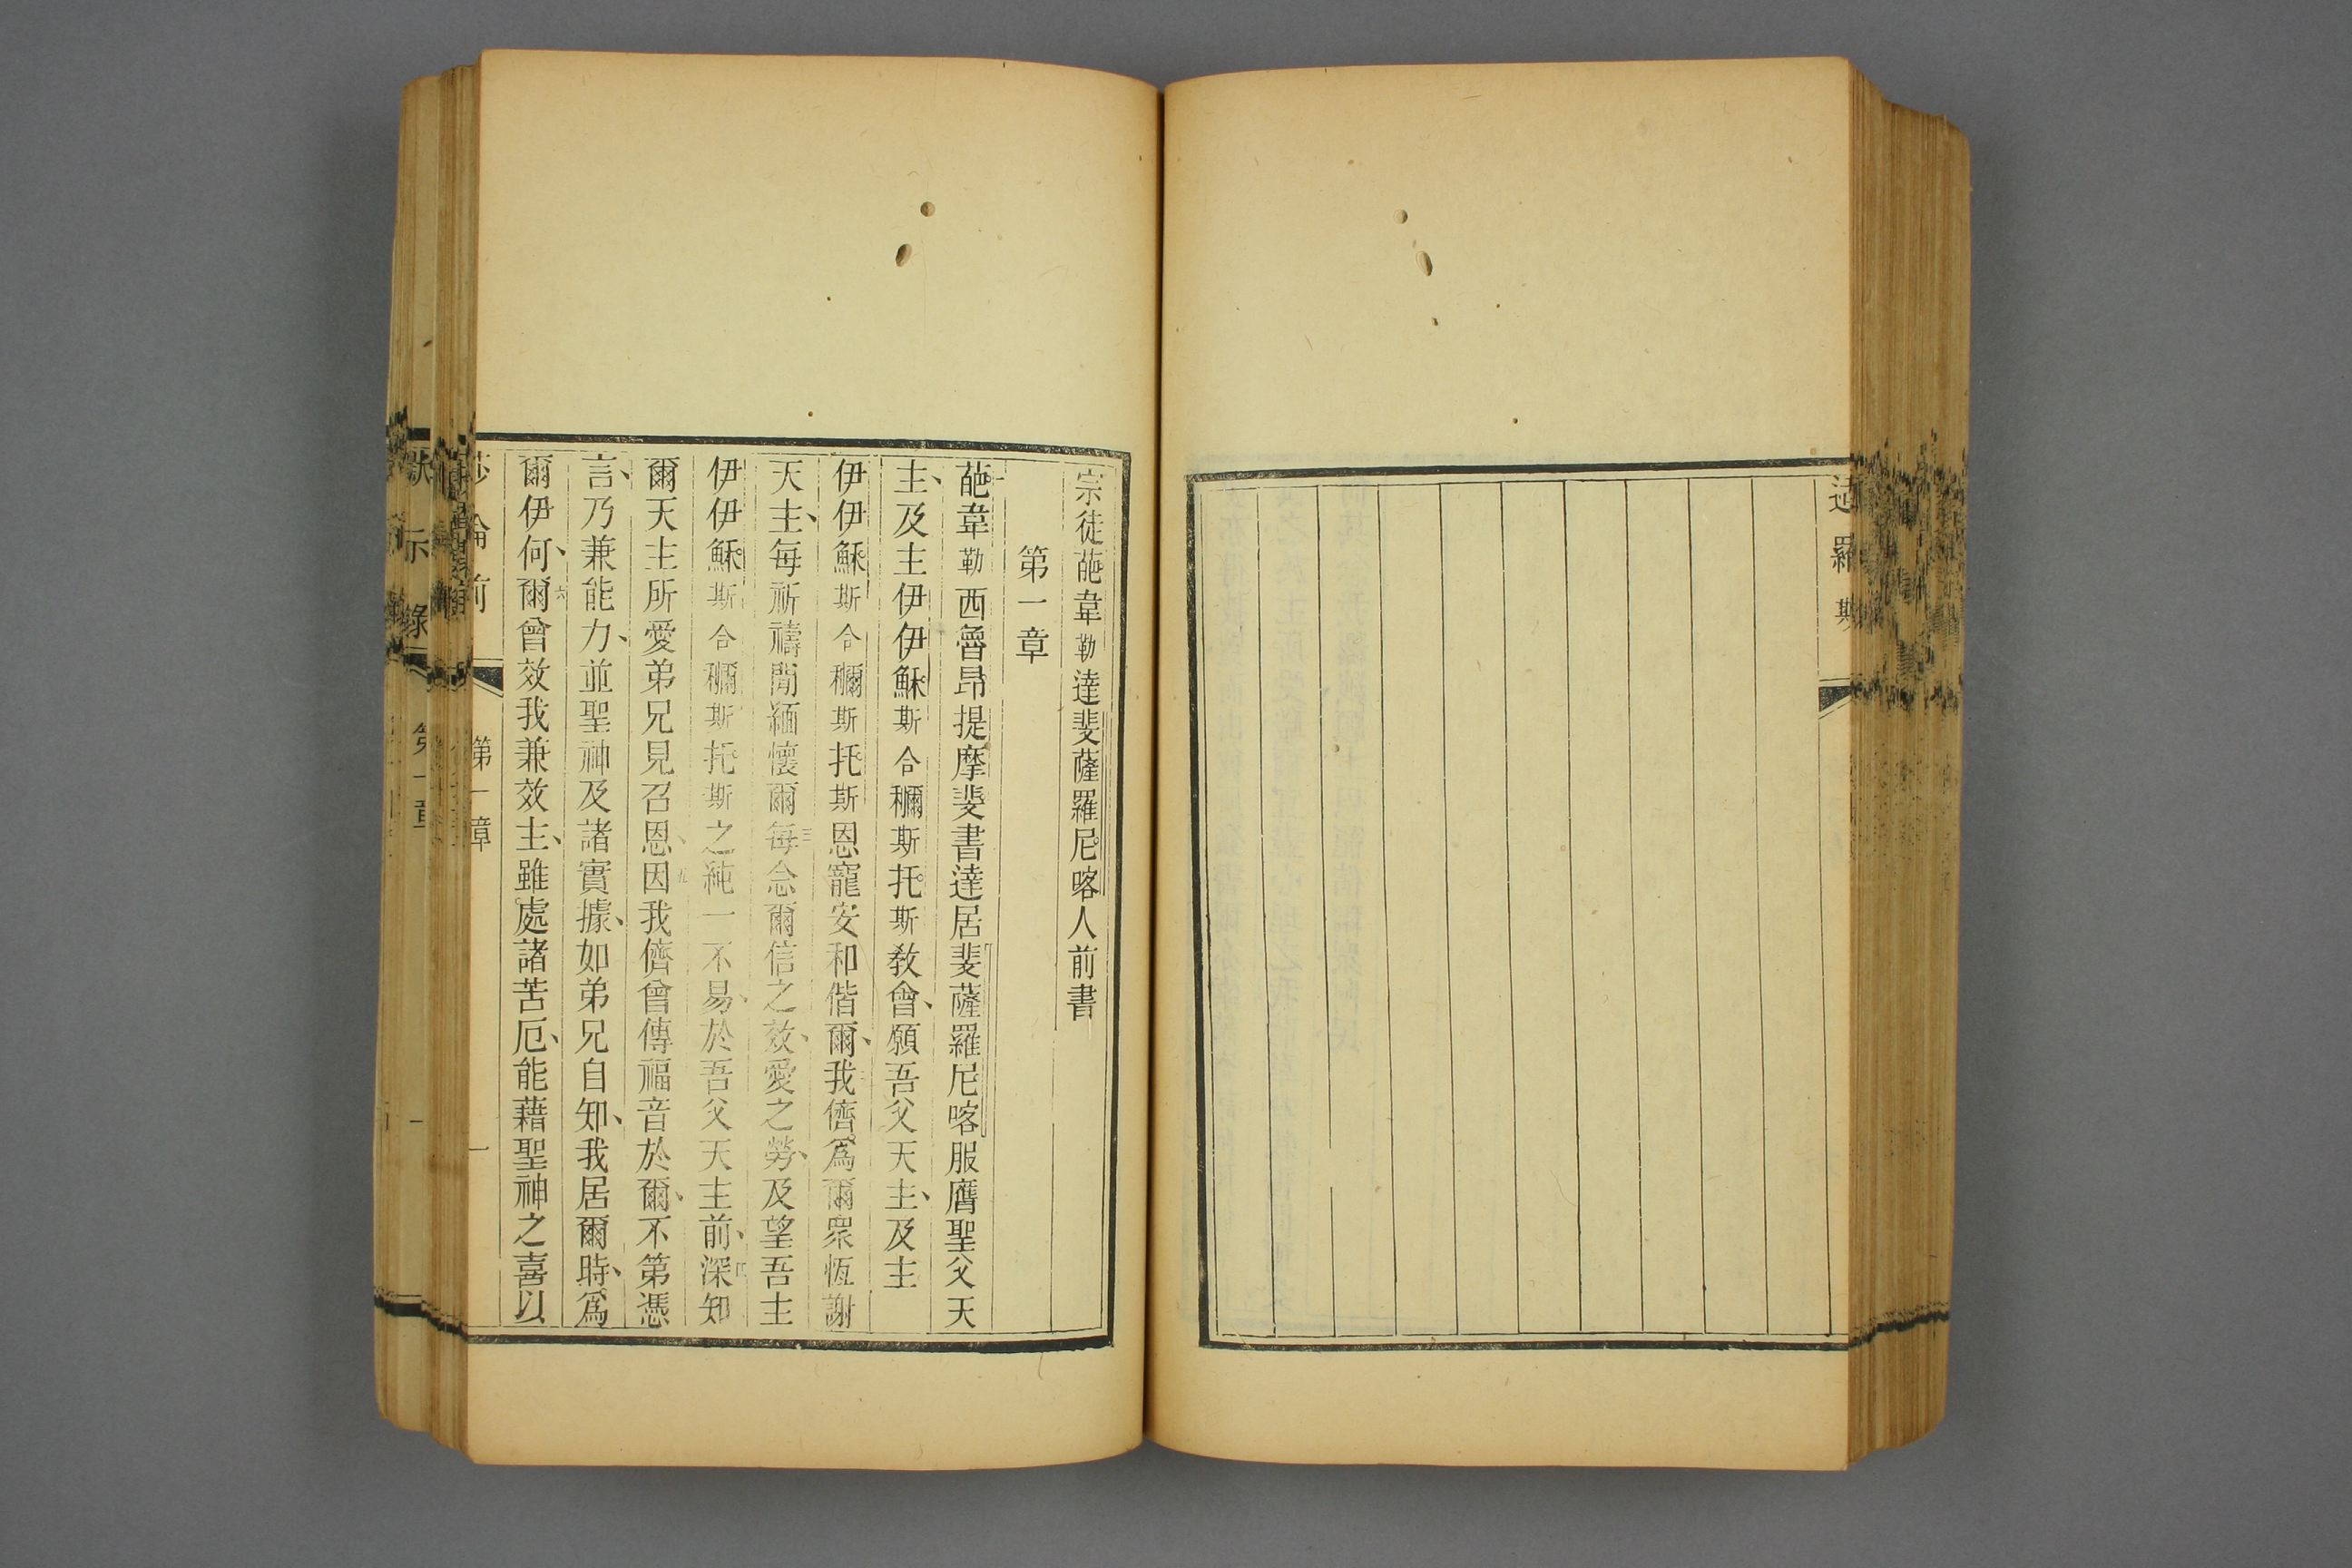 宗徒葩韋勒達斐薩羅尼喀人前書
第一章
葩韋勒西魯昂提摩斐書達居斐薩羅尼喀服膺聖父天
主、及主伊伊穌斯合穪斯托斯敎會、願吾父天主、及主
伊伊穌斯合穪斯托斯恩寵安和偕爾、我儕爲爾衆恆謝
天主、每祈禱間緬懷爾三每念爾信之效、愛之勞、及望吾主
伊伊穌斯合穪斯托斯之純一不易、於吾父天主前、四深知
爾天主所愛弟兄見召恩、五因我儕曾傳福音於爾、不第憑
言、乃兼能力、並聖神及諸實據、如弟兄自知、我居爾時、爲
爾伊何、六爾曾效我兼效主、雖處諸苦厄、能藉聖神之喜以
第一章
一
羅斯
示錄
第一章
一